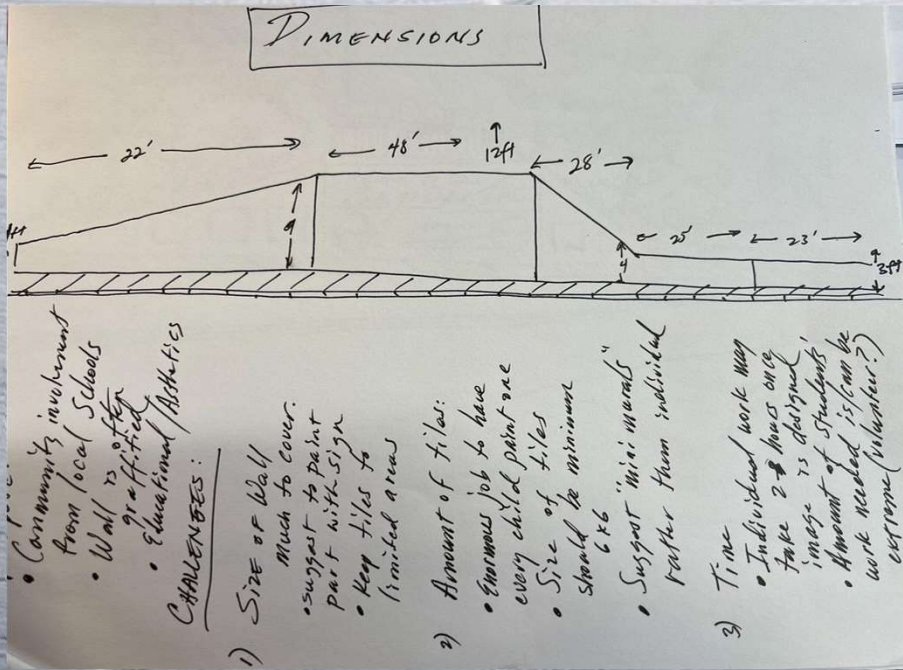 DIMENSIONS
22'
48'
12ft
28'
9
4
25'
23'
3ft
• Community involvement
from local Schools
• Wall is often
graffitied
• Educational/Asthetics
CHALLENGES:
1) SIZE OF Wall
much to cover:
• suggest to paint
part with sign
• Keep tiles to
limited areas
2) Amount of tiles:
• Enormous job to have
every child paint one
• Size of tiles
should be minimum
6x6
• Suggest "mini murals"
rather than individual
3) Time
• Individual work may
take hours once
image is designed
• Amount of students'
work needed is/can be
extreme (volunteer?)